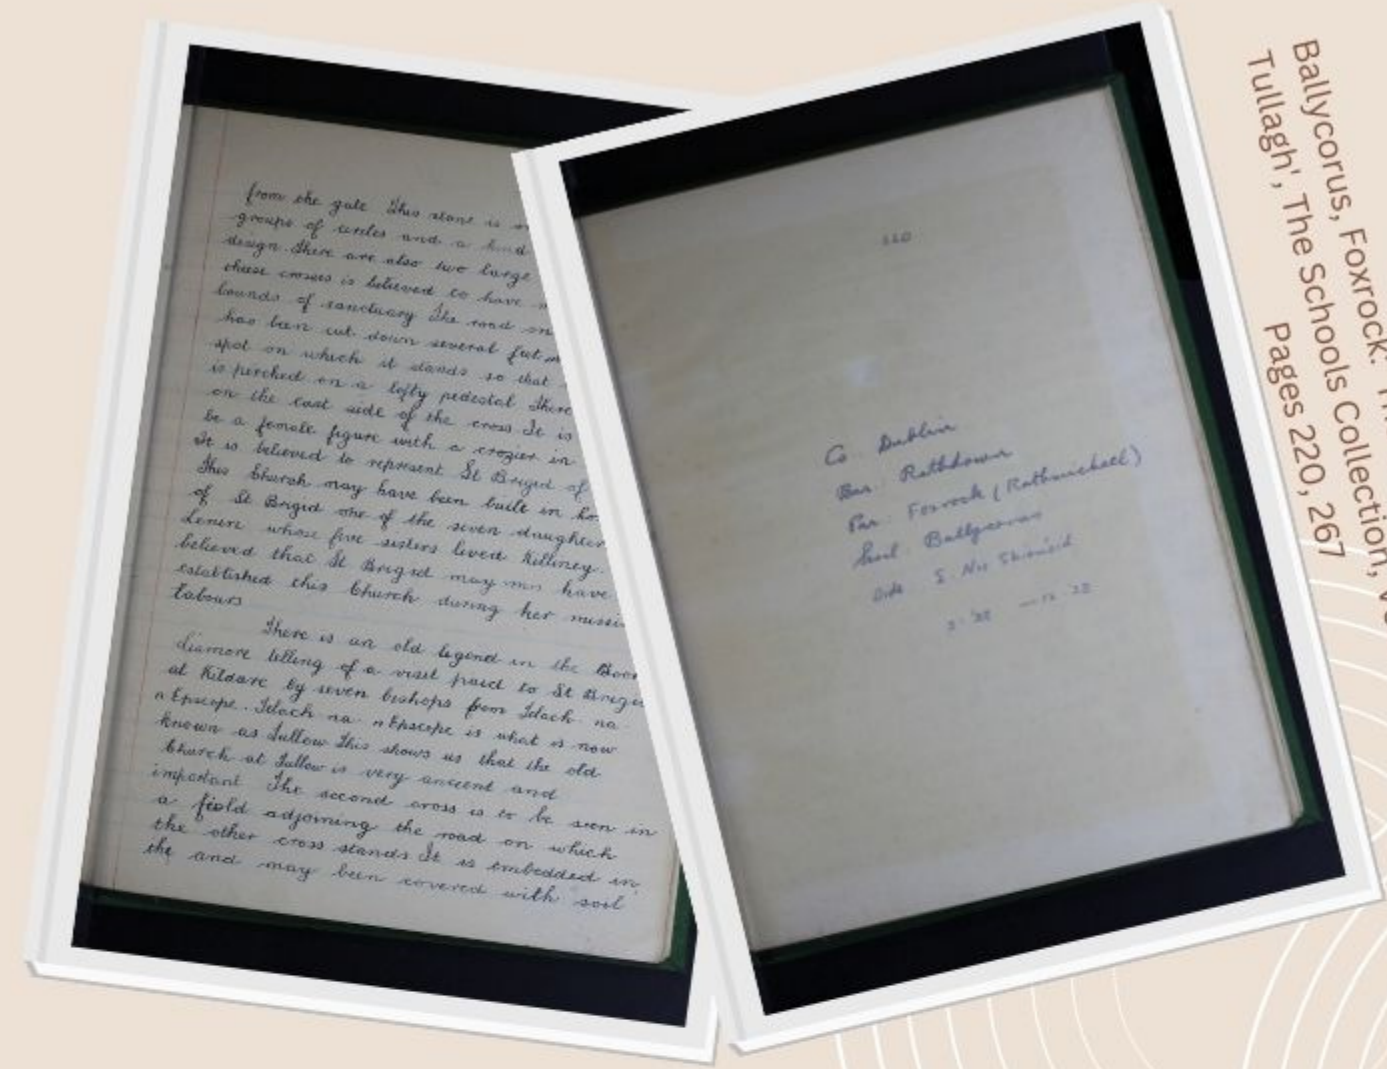 from the gate This stone is
groups of circles and a kind
design. There are also two large
these crosses is believed to have
bounds of sanctuary The road on
has been cut down several feet
spot on which it stands so that
is perched on a lofty pedestal There
on the east side of the cross It is
be a female figure with a crozier in
It is believed to represent St Brigid of
This Church may have been built in
of St Brigid one of the seven daughters
Lenin whose five sisters lived Killiney.
believed that St Brigid may have
established this Church during her
labours
There is an old legend in the
telling of a visit paid to St Brigid
at Kildare by seven bishops from Telach na
n Epscope. Telach na n Epscope is what is now
known as Tullow This shows us that the old
Church at Tullow is very ancient and
important The second cross is to be seen in
a field adjoining the road on which
the other cross stands It is embedded in
the and may been covered with soil
220
Co. Dublin
Bar: Rathdown
Par: Foxrock (Rathmichael)
Scoil: Ballycorus
Oide S. Nic
Ballycorus, Foxrock.
Tullagh', The Schools Collection,
Pages 220, 267